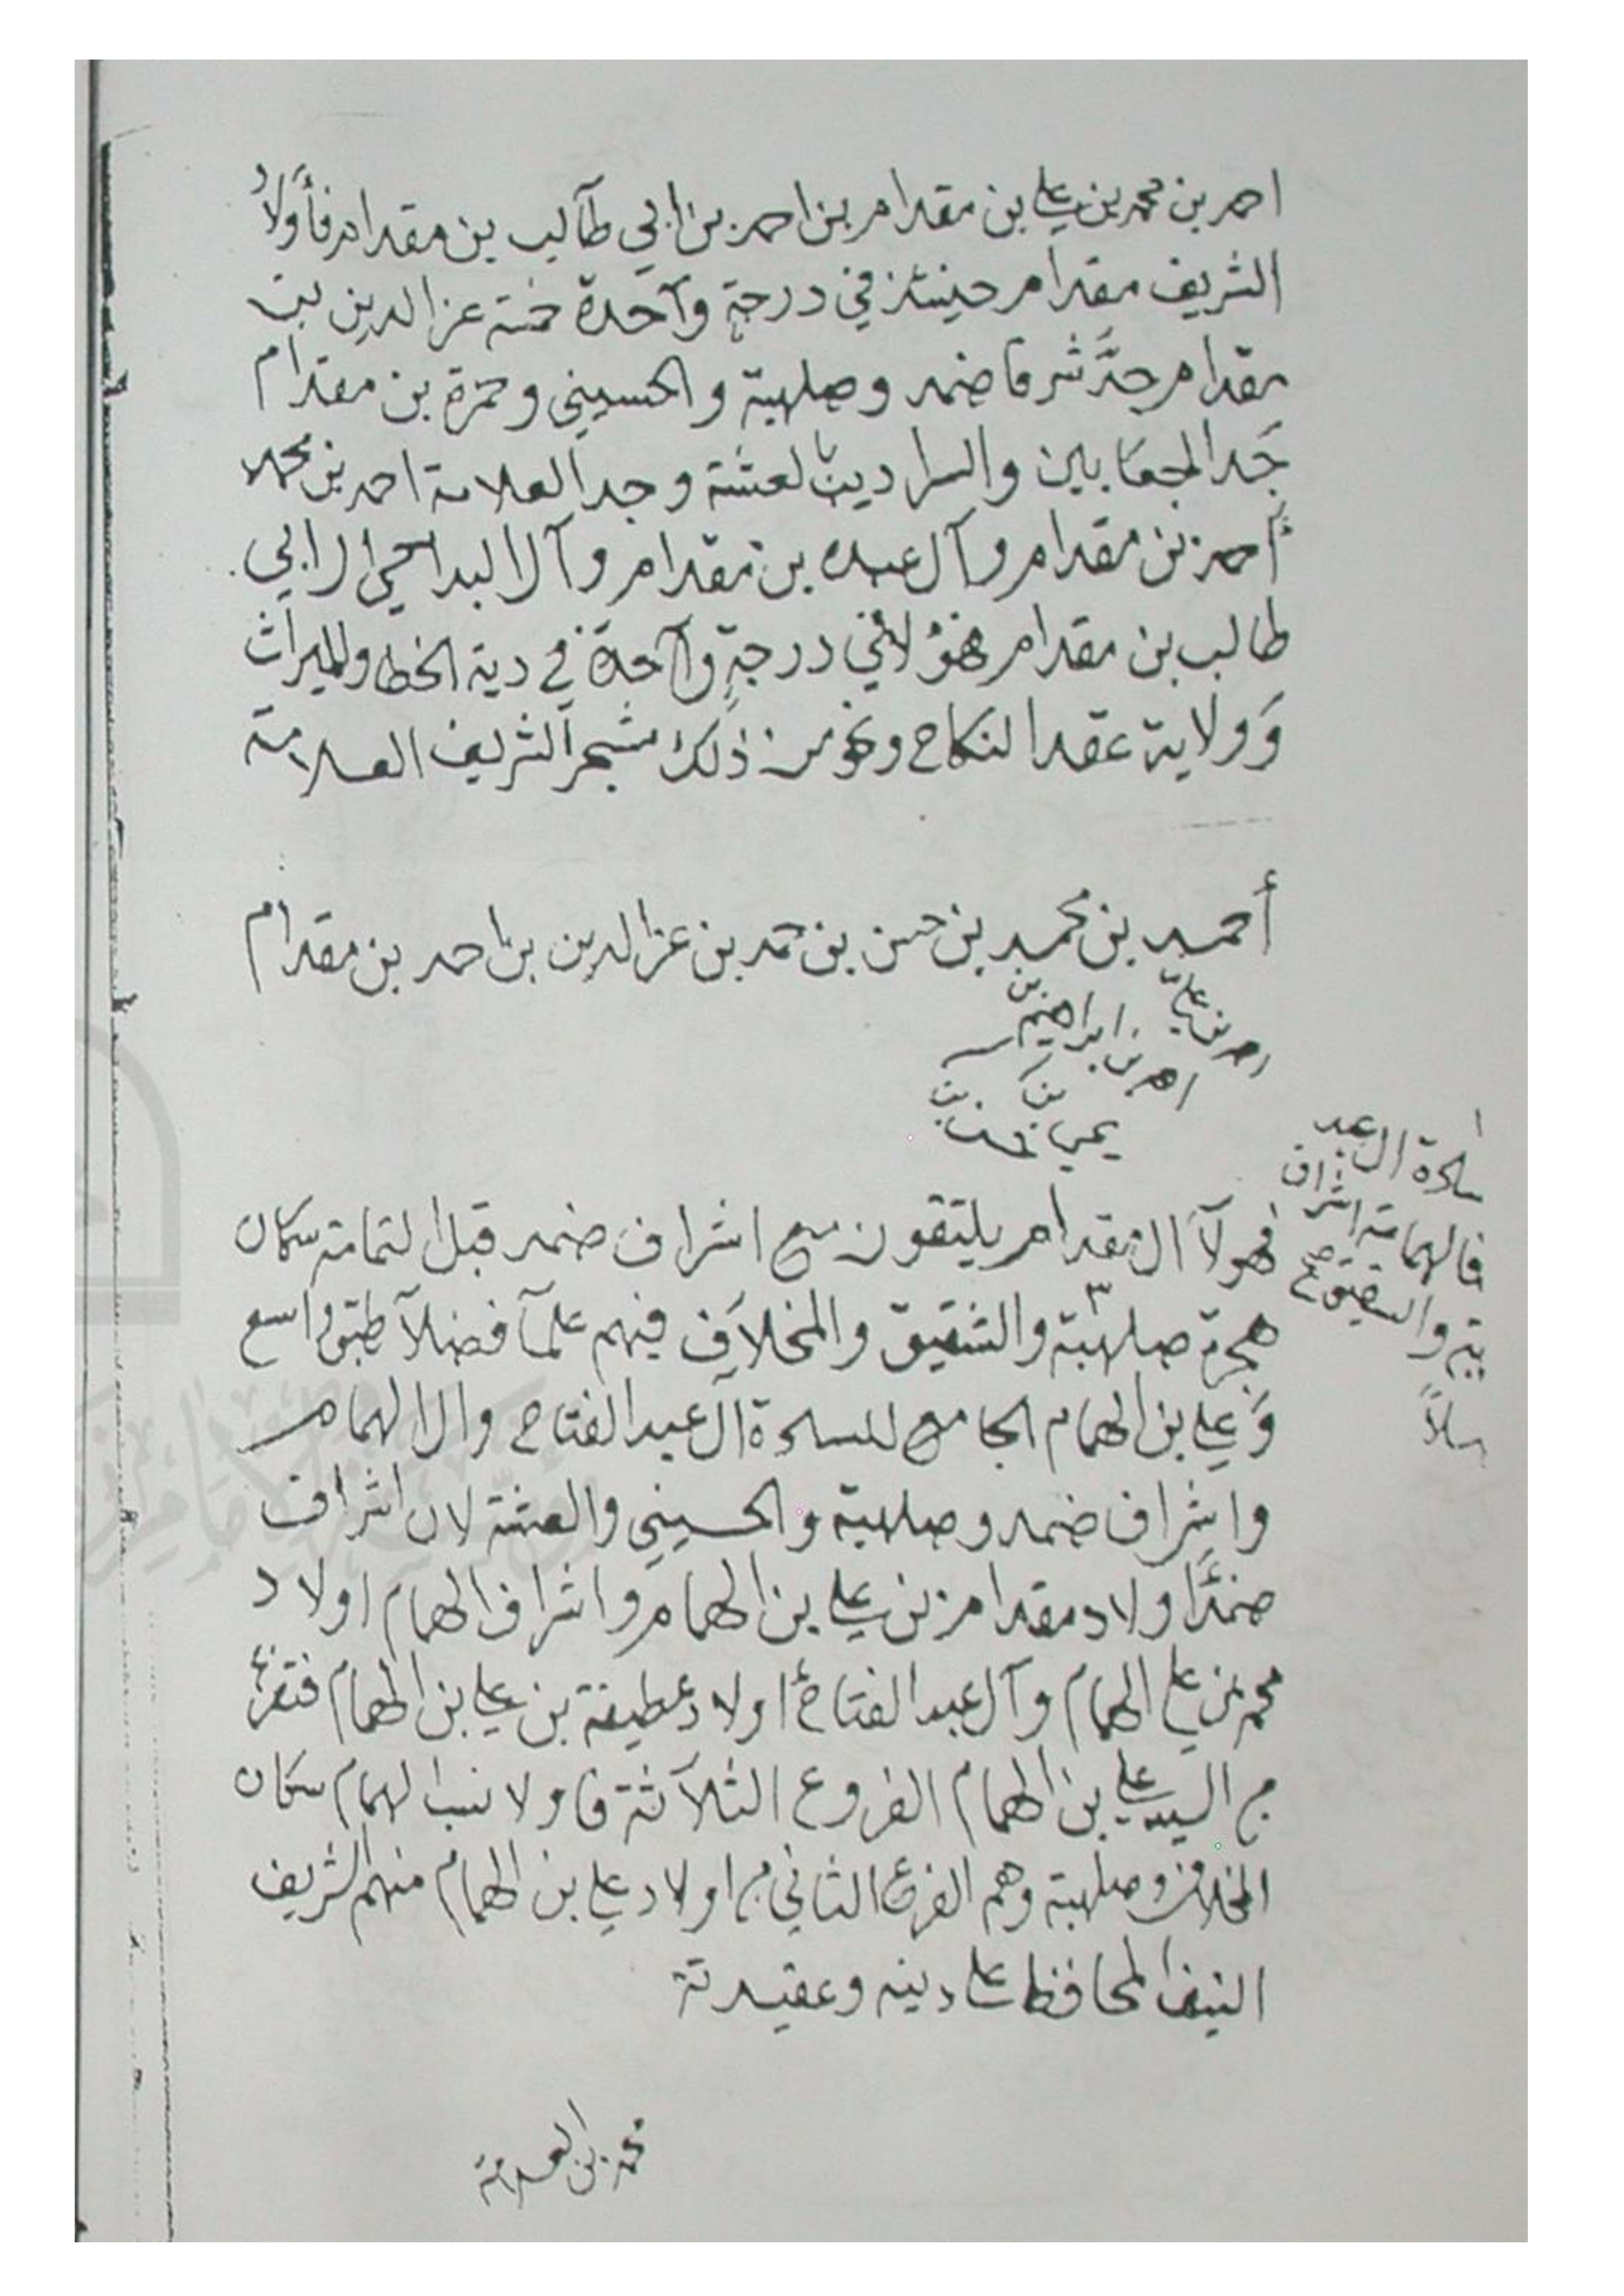 احمد بن محمد بن علي بن مقدام بن احمد بن ابي طآلب بن مقدام فأولاد
الشريف مقدام حينئذ في درجة وآحدة خمسة عز الدين بن
مقدام جد شرفا ضمد وصلهبة والحسيني وحمزة بن مقدام
جد المجعابين والسرادين لعشة وجد العلامة احمد بن محمد
أحمد بن مقدام وآل عبده بن مقدام وآل البداحي ال ابي
طالب بن مقدام فهؤلا في درجةٍ وآحدة في دية الخطا والميراث
وَولاية عقد النكاح ونحو من ذلك مشجر الشريف العلامة
أحمد بن محمد بن حسن بن حمد بن عز الدين بن احمد بن مقدام
احمد بن علي
احمد بن ابراهيم بن
يحيى بن
فهولآ ال مقدام يلتقون مع اشراف ضمد قبل التمامة سكان
هجرة صلهبة والشقيق والمخلاف فيهم علمآ فضلآ طبق واسع
وَعلي بن الهمام الجامع للسادة آل عبد الفتاح وال الهمام
واشراف ضمد وصلهبة والحسيني والعشة لان اشراف
ضمد اولاد مقدام بن علي بن الهمام واشراف الهمام اولاد
محمد بن علي الهمام وآل عبد الفتاح اولاد عطيفة بن علي بن الهمام فتفرع
من السيد علي بن الهمام الفروع الثلآثة فاولا نسب الهمام سكان
المخلاف وصلهبة وهم الفرع الثاني من اولاد علي بن الهمام منهم الشريف
النيف المحافظ على دينه وعقيدتة
محمد بن العلامة
سادة ال عبد
فالهمامة اشراف
بية والشقيق